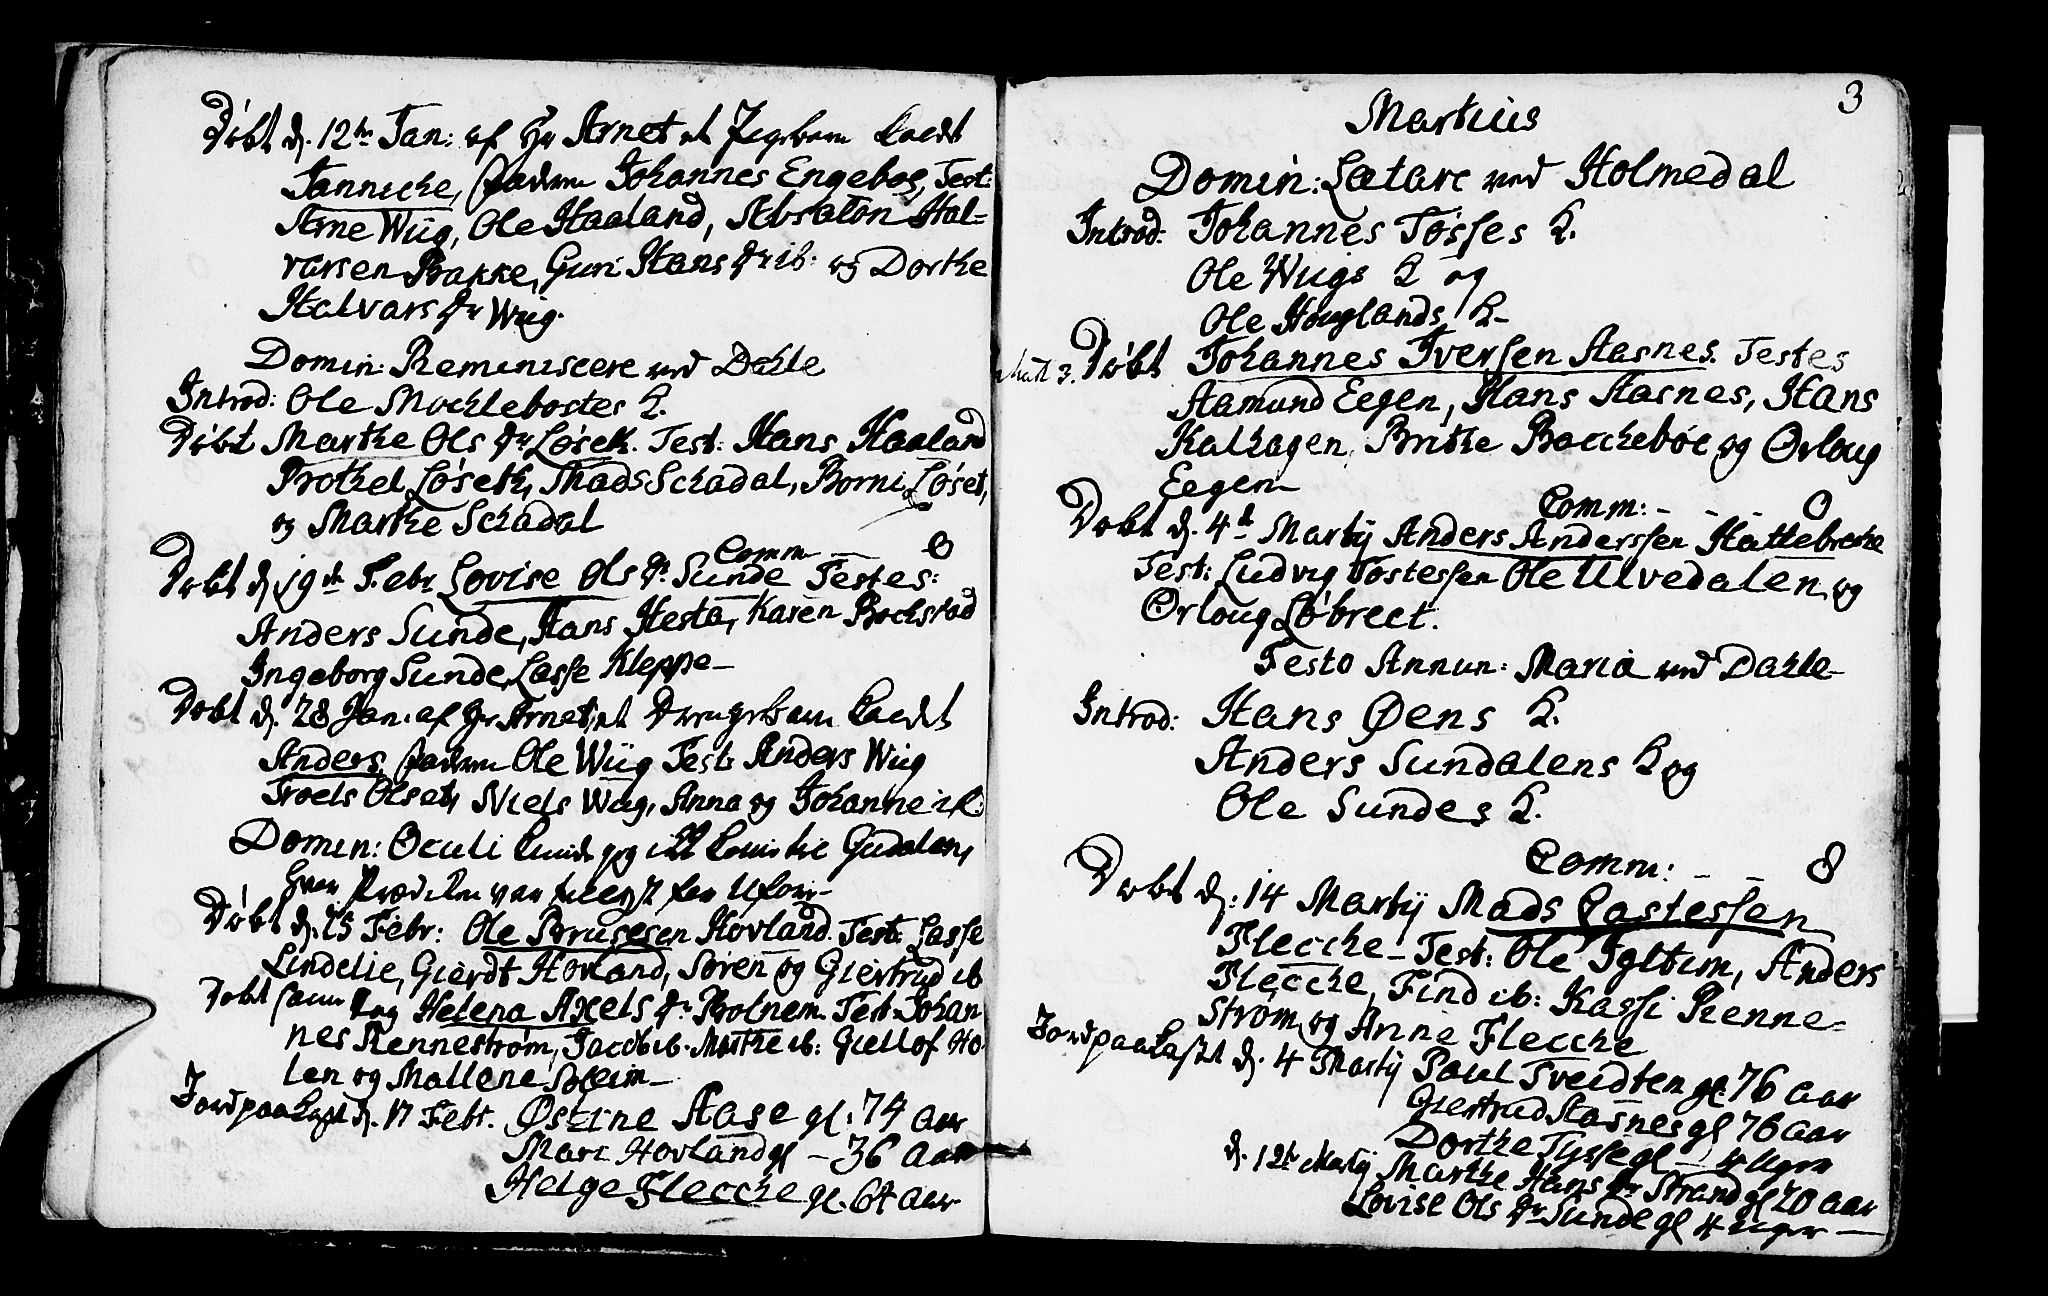 Døbt d. 12te Jan: af Hr Arnet et Pigebarn kaldt
Jannicke, Faderen Johannes Engebøe, Test:
Arne Wiig, Ole Haaland, Absalon Hal-
varsen Bakke, Guri Hans dr ib: og Dorthe
Halvars dr Wiig.
Domin: Reminiscere ved Dahle
Introd: Ole Mochlebostes K.
Døbt Marthe Ols dr Løseth. Test: Hans Haaland
Brothel Løseth, Mads Schadal, Borni Løset,
og Marthe Schadal
Comm — 0
Døbt d. 19de Febr Lovise Ols dr Sunde Testes:
Anders Sunde, Hans Hesta, Karen Bochstad
Ingeborg Sunde, Lasse Kleppe —
Døbt d. 28 Jan. af Hr Arnet, et Drengebarn kaldt
Anders, Faderen Ole Wiig Test: Anders Wiig
Troels Olset, Niels Wiig, Anna og Johanne ib:
Domin: Oculi kunde jeg ikke komme til Gudalen,
hvor Prædiken var berammet
Døbt d. 25 Febr: Ole Brusesen Hovland. Test: Lasse
Lindelie, Gierdt Hovland, Søren og Giertrud ib
Døbt samme Dag Helena Axels dr Bolnem. Test: Johan
nes Rennestrøm, Jacob ib. Marthe ib: Giellof Ho-
len og Mallene Soleim —
Jordpaakast d. 17 Febr. Østine Aase gl: 74 aar
Mari Hovland gl — 36 aar
Helge Flecche gl. 64 aar
3
Martius
Domin: Lætare ved Holmedal
Introd: Johannes Tøsses K.
Ole Wiigs K og
Ole Houglands K —
Døbt Johannes Iversen Aasnes. Testes
Aamund Eegen, Hans Aasnes, Hans
Kalhagen, Brithe Bacchebøe og Orloug
Eegen —
Comm: - - - 0
Døbt d. 4de Martij Anders Anderssen Hattebreche
Test: Ludvig Tostessen Ole Ulvedalen og
Orloug Løbreet.
Festo Annun: Mariæ ved Dahle —
Introd: Hans Øens K.
Anders Sundalens K og
Ole Sundes K.
Comm: - - 8
Døbt d: 14 Martij Mads Lastessen
Flecche — Test: Ole Tyltim, Anders
Flecche, Find ib: Kassi Renne-
strøm og Anne Flecche
Jordpaakast d. 4 Martij Paul Tveidten gl. 76 aar
Giertrud Aasnes gl 76 aar
Dorthe Tysse gl — 4 uger
d. 12te Martij Marthe Hans dr Strand gl 20 aar
Lovise Ols dr Sunde gl 4 uger —